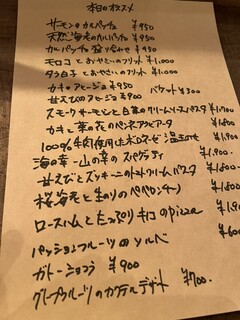 本日のオススメ
サーモンのカルパッチョ ¥950
天然海老のカルパッチョ ¥950
カルパッチョ盛り合わせ ¥950
モロコとおやさいのフリット ¥1,000
タラ白子とおやさいのフリット ¥1,000
カキのアヒージョ ¥950
甘えびのアヒージョ ¥900 バケット ¥300
スモークサーモンと白菜のクリームソースパスタ ¥1,700
カキと菜の花のペンネアラビアータ ¥1,800
100%牛肉使用したボロネーゼ 温玉のせ ¥1,900
海の幸・山の幸のスパゲティ ¥1,900
甘えびとズッキーニのトマトクリームパスタ ¥1,800
桜海老と生のりのペペロンチーノ ¥1,800
ロースハムとたっぷりキノコのpizza ¥1,900
パッションフルーツのソルベ ¥600
ガトーショコラ ¥900
グレープフルーツのカクテルデザート ¥700